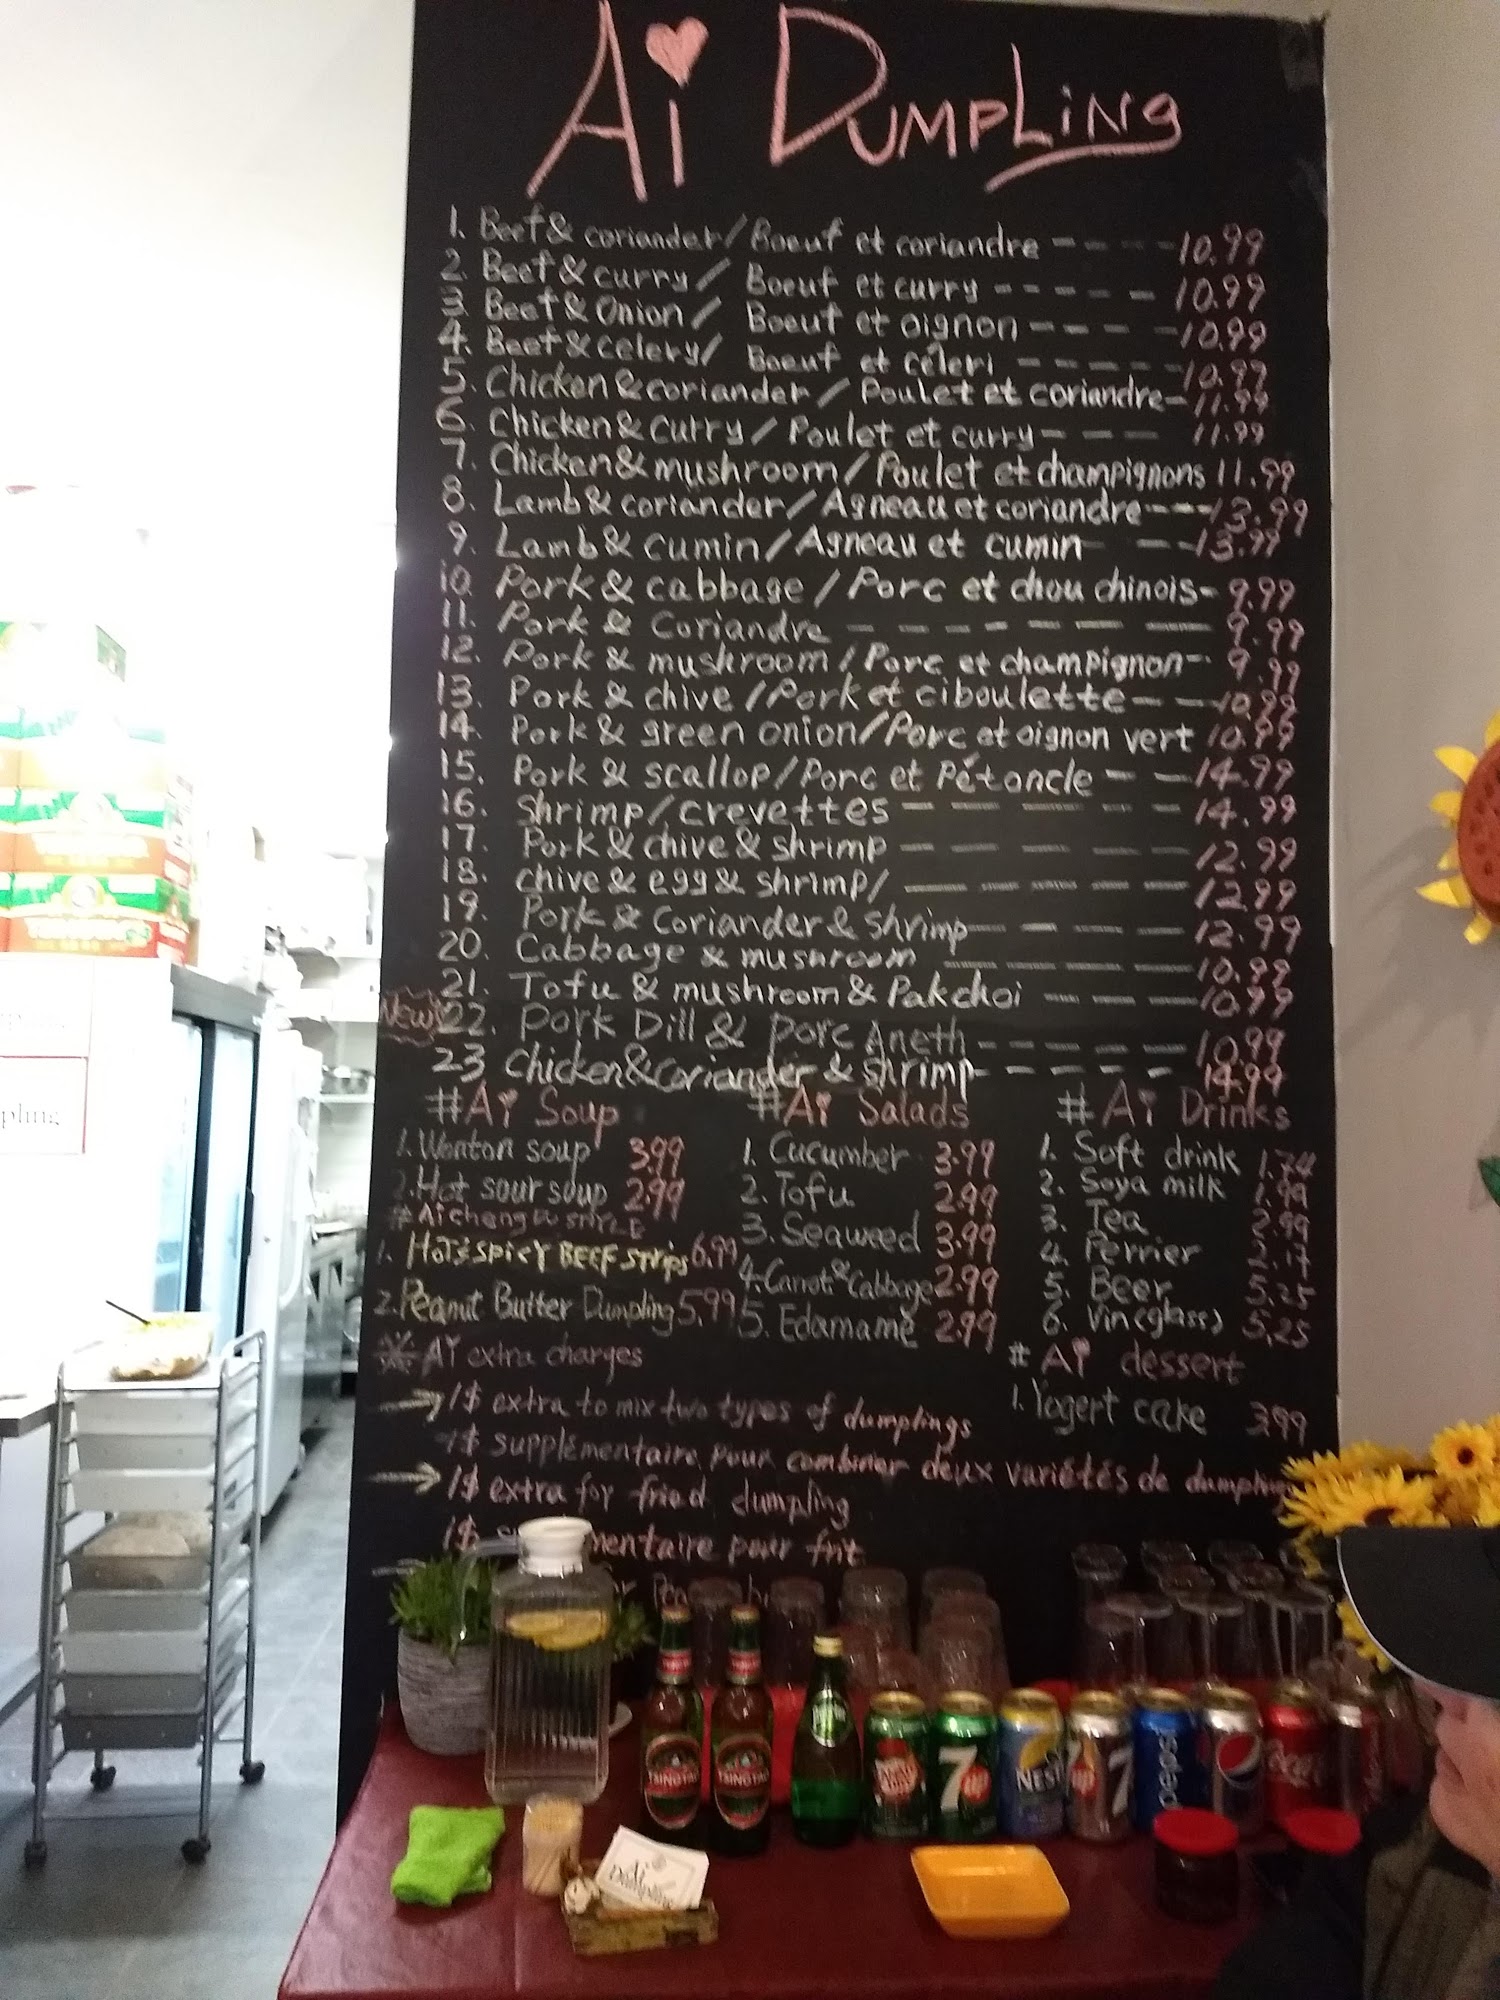 Ai Dumpling
1. Beef & coriander / Boeuf et coriandre ---- 10.99
2. Beef & curry / Boeuf et curry ----- 10.99
3. Beef & Onion / Boeuf et oignon ---- 10.99
4. Beef & celery / Boeuf et cêleri ------ 10.99
5. Chicken & coriander / Poulet et coriandre- 11.99
6. Chicken & curry / Poulet et curry--- 11.99
7. Chicken & mushroom / Poulet et champignons 11.99
8. Lamb & coriander / Agneau et coriandre--- 13.99
9. Lamb & cumin / Agneau et cumin --- 13.99
10. Pork & cabbage / Porc et chou chinois- 9.99
11. Pork & Coriandre ------- 9.99
12. Pork & mushroom / Porc et champignon-- 9.99
13. Pork & chive / Pork et ciboulette--- 10.99
14. Pork & green onion / Porc et oignon vert 10.99
15. Pork & scallop / Porc et Pétoncle --- 14.99
16. Shrimp / crevettes ------ 14.99
17. Pork & chive & shrimp ------ 12.99
18. chive & egg & shrimp / ------ 12.99
19. Pork & Coriander & shrimp----- 12.99
20. Cabbage & mushroom ------ 10.99
21. Tofu & mushroom & Pakchoi ---- 10.99
New! 22. Pork Dill & porc Aneth------ 10.99
23 Chicken & coriander & shrimp----- 14.99
#Ai Soup
1. Wonton soup 3.99
2. Hot sour soup 2.99
1. Hot & Spicy BEEF strips 6.99
2. Peanut Butter Dumpling 5,99
#Ai Salads
1. Cucumber 3.99
2. Tofu 2.99
3. Seaweed 3.99
4. Carrot & Cabbage 2.99
5. Edamame 2.99
# Ai Drinks
1. Soft drink 1.74
2. Soya milk 1.99
3. Tea 2.99
4. Perrier 2.17
5. Beer 5.25
6. Vin (glass) 5,25
# Ai dessert
1. Yogert cake 3.99
※ Ai extra charges
→ 1$ extra to mix two types of dumplings
1$ supplémentaire pour combiner deux variétés de dumplings
→ 1$ extra for fried dumpling
1$ mentaire pour frit
pling
TSINGTAO
TSINGTAO
7up
NEST
7
pepsi
Coca
Ai Dumpling